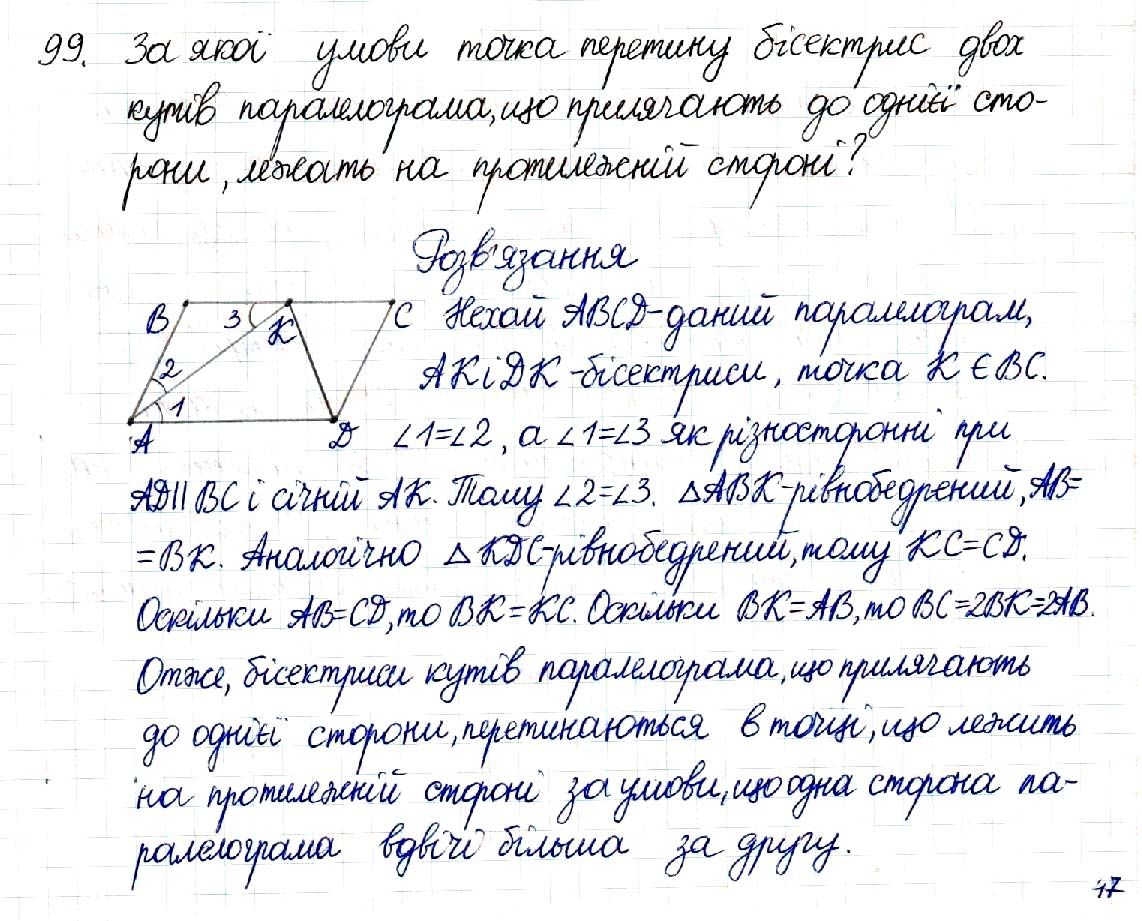 99. За якої умови точка перетину бісектрис двох
кутів паралелограма, що прилягають до однієї сто-
рони, лежать на протилежній стороні?
Розв'язання
B 3 K C
2
1
A D
Нехай ABCD-даний паралелограм,
AK і DK -бісектриси, точка K ∈ BC.
∠1=∠2, а ∠1=∠3 як різносторонні при
AD||BC і січній AK. Тому ∠2=∠3. △ABK-рівнобедрений, AB=
=BK. Аналогічно △KDC-рівнобедрений, тому KC=CD.
Оскільки AB=CD, то BK=KC. Оскільки BK=AB, то BC=2BK=2AB.
Отже, бісектриси кутів паралелограма, що прилягають
до однієї сторони, перетинаються в точці, що лежить
на протилежній стороні за умови, що одна сторона па-
ралелограма вдвічі більша за другу.
17